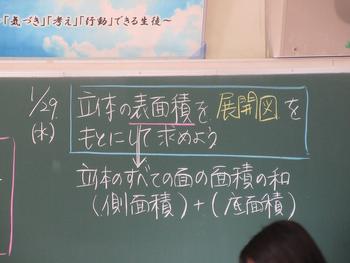 「気づき」「考え」「行動」できる生徒～
1/29
(水)
立体の表面積を展開図を
もとにして求めよう
立体のすべての面の面積の和
(側面積)+(底面積)